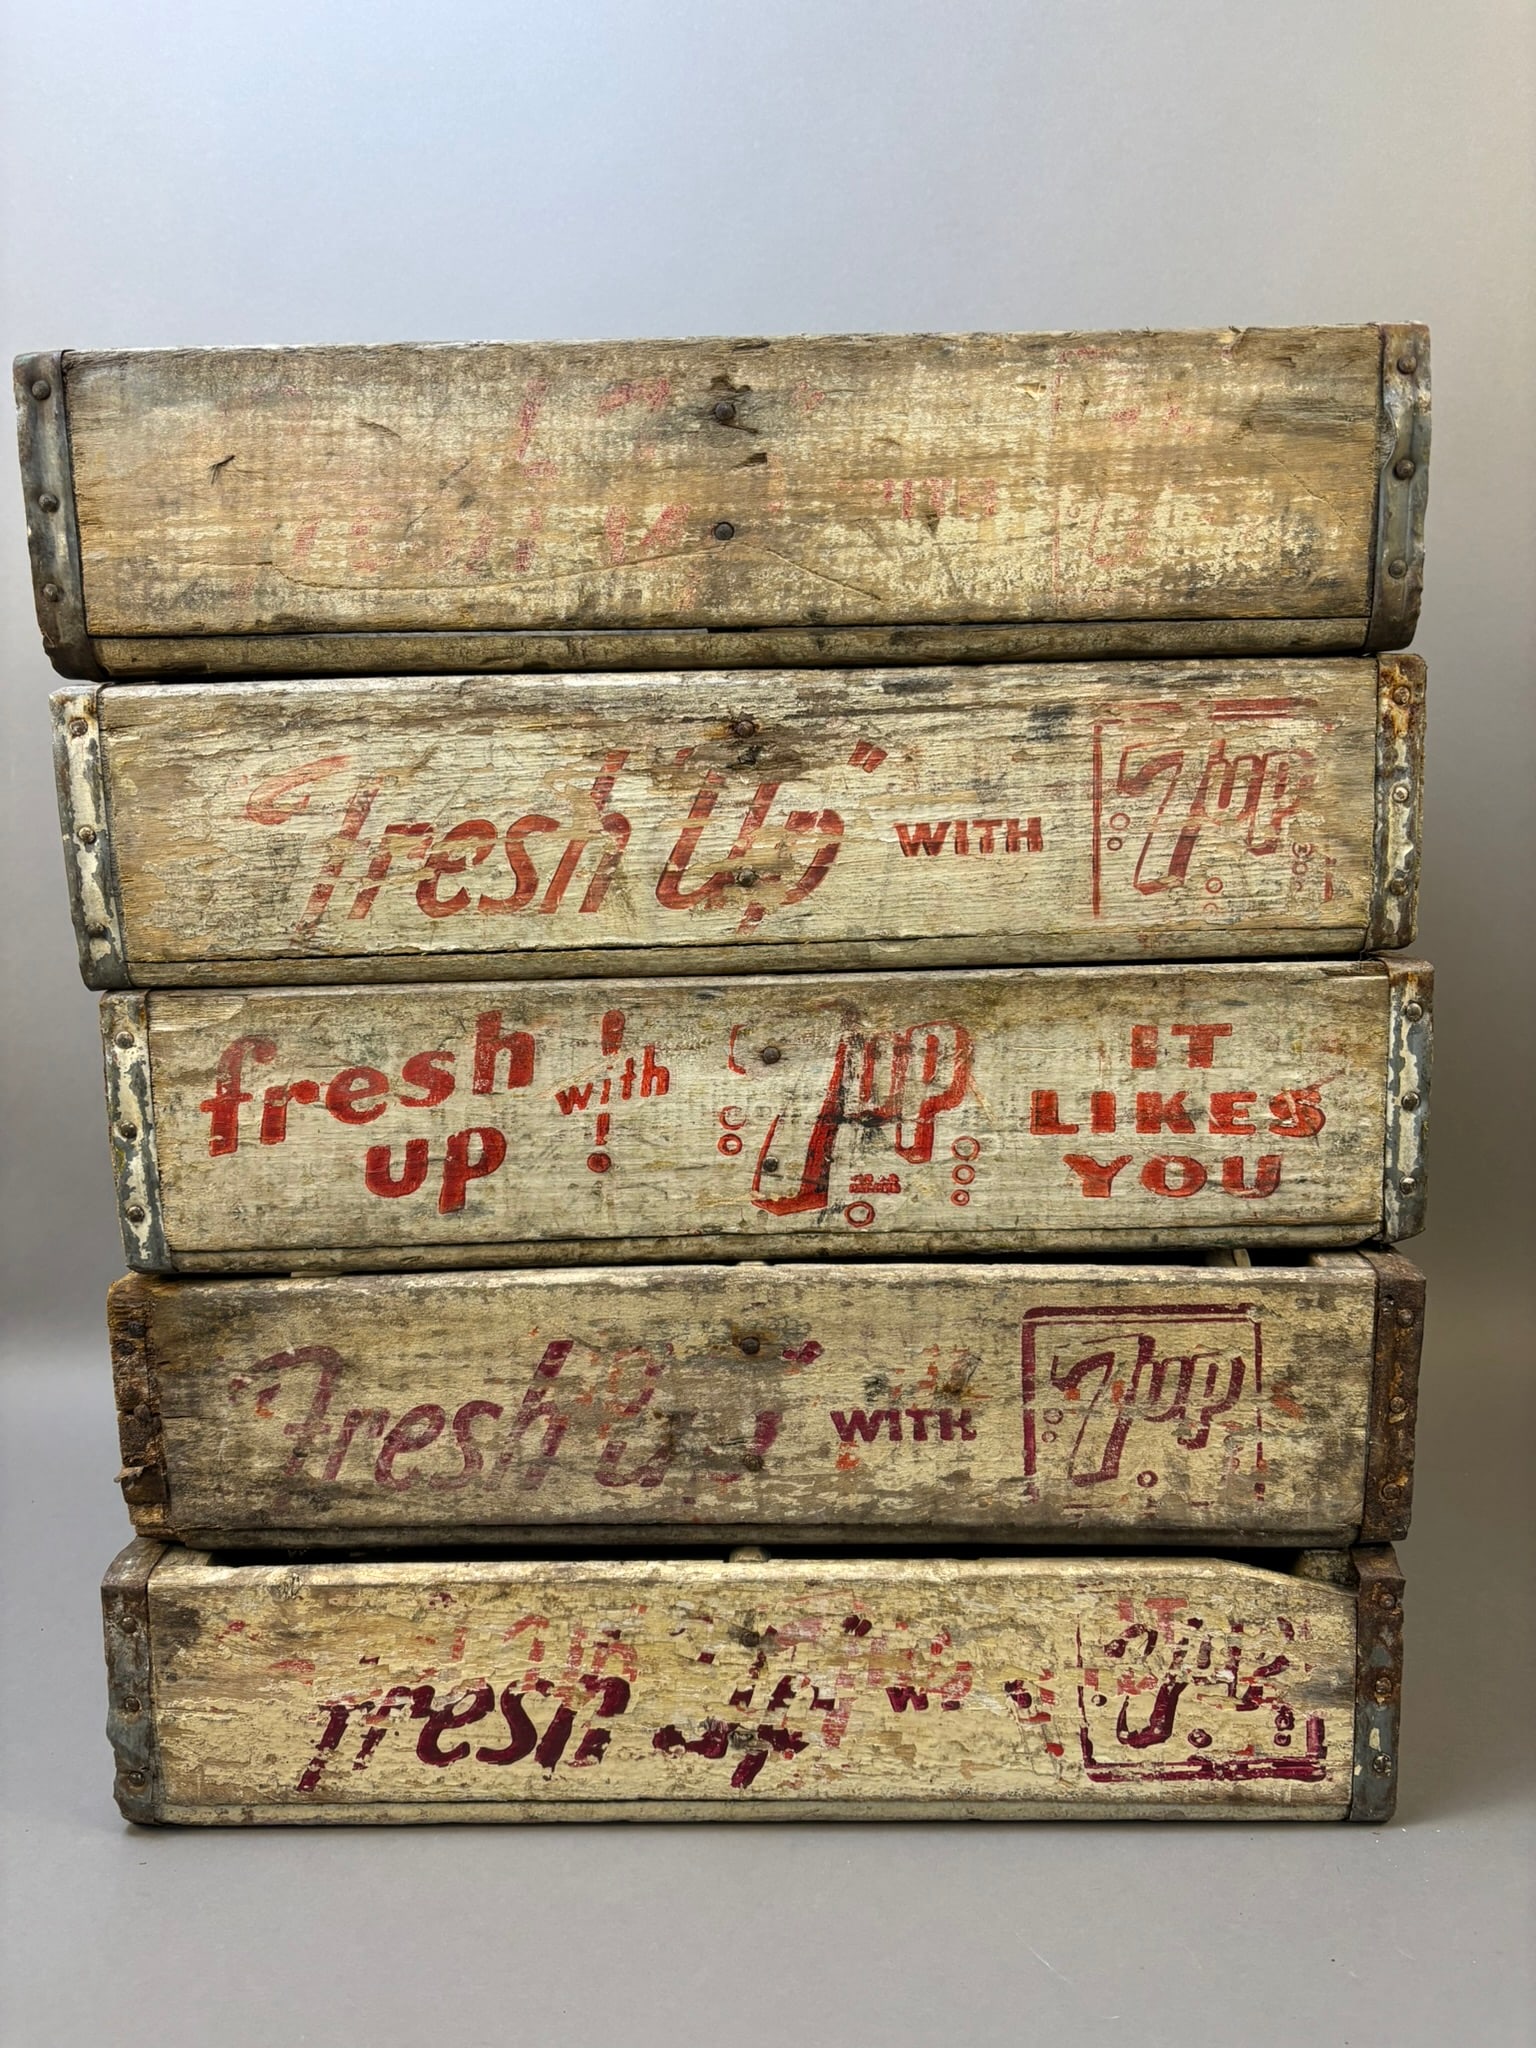 WITH
"Fresh Up" WITH 7up
fresh up ! with ! 7up IT LIKES YOU
Fresh Up" WITH 7up
Fresh Up